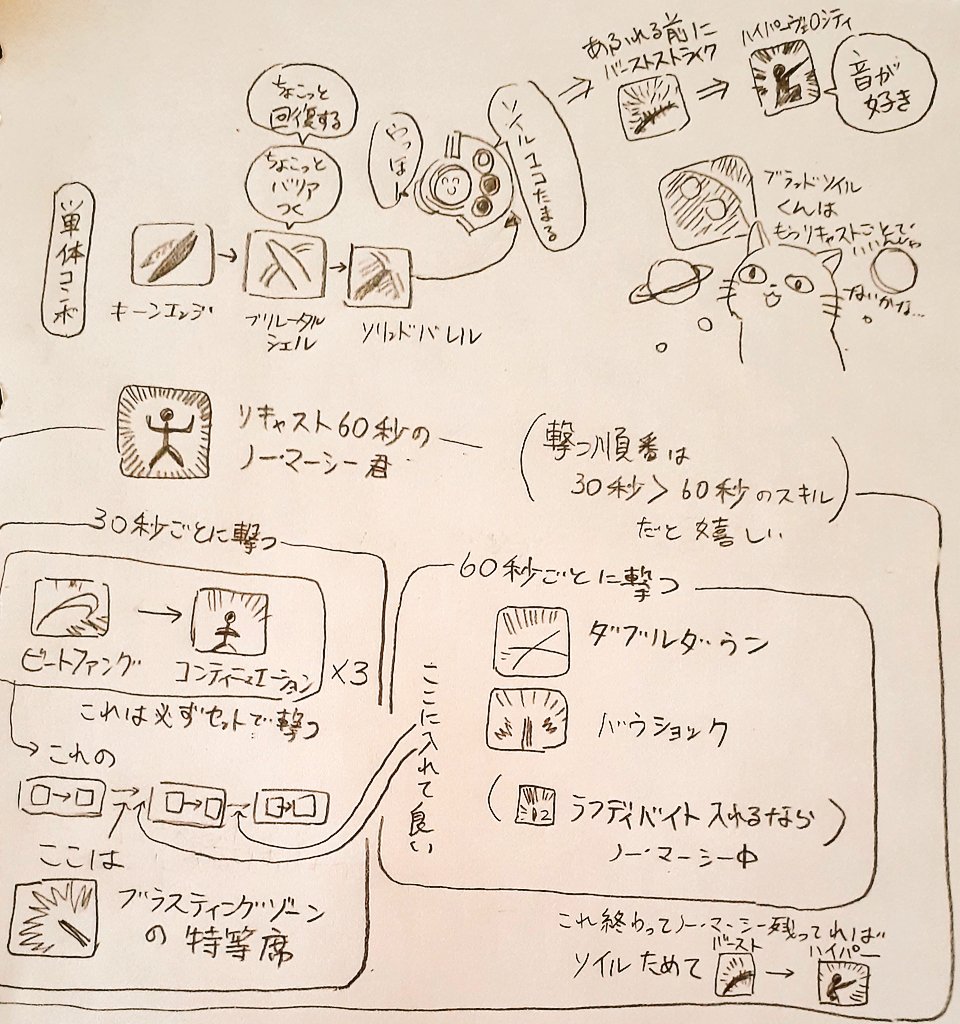 単体コンボ
キーンエッジ
ちょこっと
回復する
ちょこっと
バリア
つく
ブルータル
シェル
ソリッドバレル
やっほー
ソイルココたまる
あふれる前に
バーストストライク
ハイパーヴェロシティ
音が
好き
ブラッドソイル
くんは
もうリキャストごとで
いいんじゃ
ないかな…
リキャスト60秒の
ノー・マーシー君
撃つ順番は
30秒>60秒のスキル
だと嬉しい
30秒ごとに撃つ
ビートファング
コンティニュエーション
×3
これは必ずセットで撃つ
これの
ここは
ブラスティングゾーン
の特等席
60秒ごとに撃つ
ここに入れて良い
ダブルダウン
バウショック
(ラフディバイト入れるなら
ノー・マーシー中)
これ終わってノー・マーシー残ってれば
ソイルためて
バースト
ハイパー